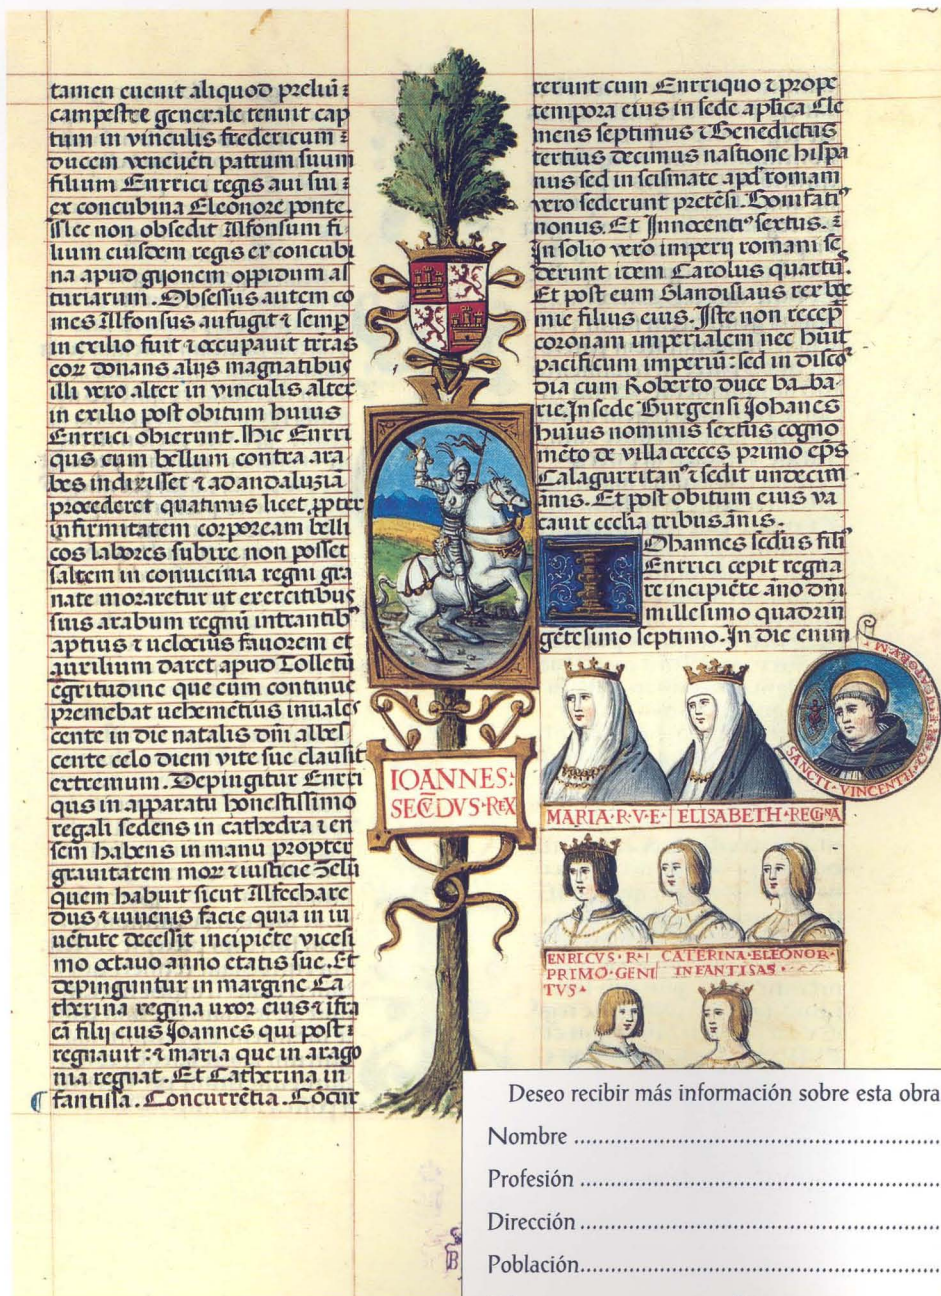 tamen euenit aliquod preliũ ⁊
campestre generale tenuit cap
tum in vinculis fredericum ⁊
ducem veneuẽti patrum suum
filium Enrrici regis aui sui ⁊
ex concubina Eleonore ponte.
Nec non obsedit Alfonsum fi
lium eiusdem regis ex concubi
na apud gijonem oppidum as
turiarum. Obsessus autem co
mes Alfonsus aufugit ⁊ semp
in exilio fuit ⁊ occupauit terras
eor donans alijs magnatibus
illi vero alter in vinculis alter
in exilio post obitum huius
Enrrici obierunt. Hic Enrri
qus cum bellum contra ara
bes indixisset ⁊ ad andaluziã
procederet quatinus licet ꝓpter
infirmitatem corpoream belli
cos labores subire non posset
saltem in conuicinia regni gra
nate moraretur ut exercitibus
suis arabum regnũ intrantibꝰ
aptius ⁊ uelocius fauorem et
auxilium daret apud Tolletũ
egritudine que eum continue
premebat uehemẽtius inuales
cente in die natalis dñi albes
cente celo diem vite sue clausit
extremum. Depingitur Enrri
qus in apparatu honestissimo
regali sedens in cathedra ⁊ en
sem habens in manu propter
grauitatem mor ⁊ iusticie zelũ
quem habuit sicut Alfechare
dus ⁊ iuuenis facie quia in iu
uẽtute decessit incipiẽte vicesi
mo octauo anno etatis sue. Et
depinguntur in margine Ca
therina regina uxor eius ⁊ ĩfra
eã filij eius Joannes qui post ⁊
regnauit: ⁊ maria que in arago
nia regnat. Et Catherina in
fantissa. Concurrẽtia. Cõcur
IOANNES:
SECD̃VS·REX
rerunt cum Enrriquo ⁊ prope
tempora eius in sede aplica Cle
mens septimus ⁊ Benedictus
tertius decimus nastione hispa
nus sed in scismate apd romam
vero sederunt pretẽsi. Bonifatiꝰ
nonus. Et Innocentiꝰ sextus. ⁊
In solio vero imperij romani se
derunt item Carolus quartũ.
Et post eum Glandislaus rex boe
mie filius eius. Iste non recep
coronam imperialem nec hũit
pacificum imperiũ: sed in discor
dia cum Roberto duce ba-ba-
rie. In sede Burgensi Johanes
huius nominis sextus cogno
mẽto de villa creces primo eps
Calagurritanꝰ ⁊ sedit undecim
anis. Et post obitum eius va
cauit ecclia tribus ãnis.
IOhannes scdus filiꝰ
Enrrici cepit regna
re incipiẽte año dñi
millesimo quadrin
gẽtesimo septimo. In die enim
SANCTI·VINCENTIJ·
MARIA·R·V·E· ELISABETH·REGINA
ENRICVS·R·I CATERINA·ELEONOR·
PRIMO·GENI INFANTISAS
TVS·
Deseo recibir más información sobre esta obra
Nombre
Profesión
Dirección
Población